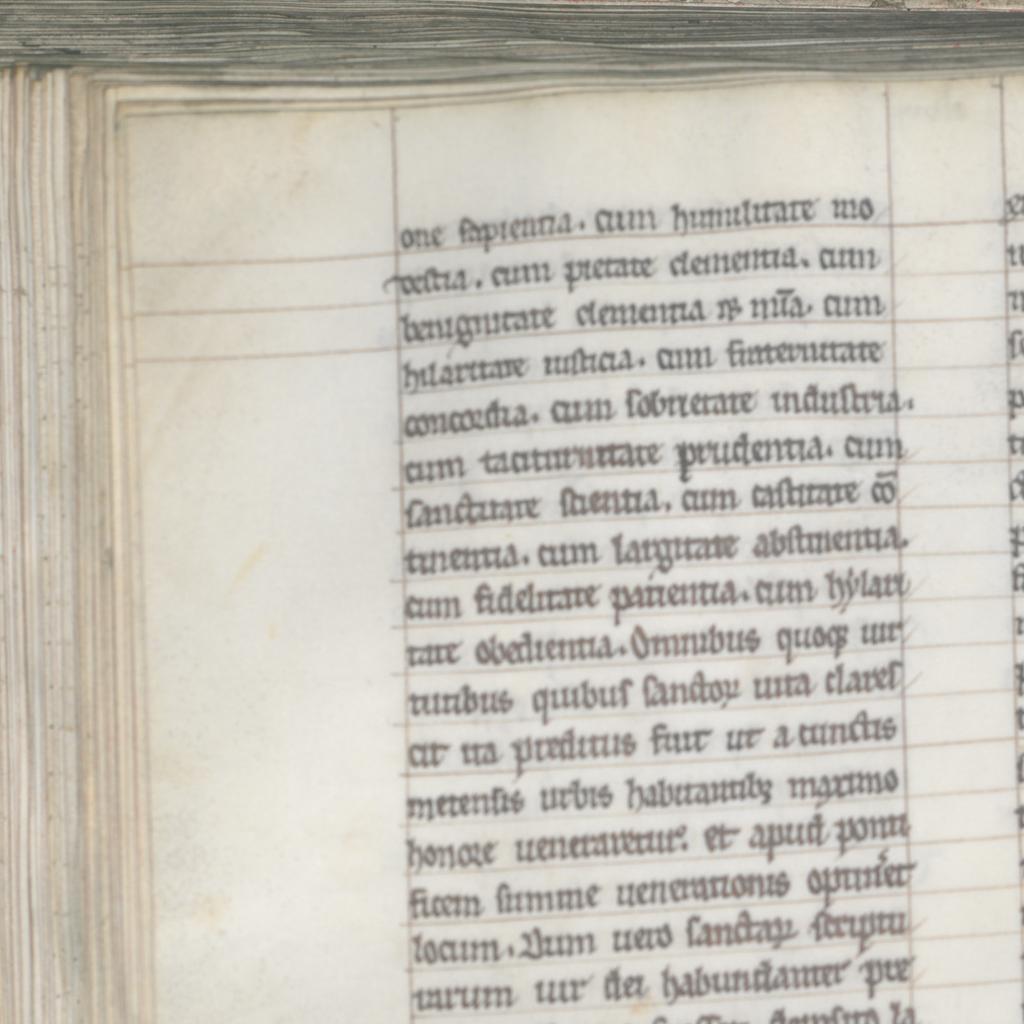 one sapientia. cum humilitate mo
destia. cum pietate clementia. cum
benignitate clementia cum
hilaritate iusticia. cum sinceritate
concordia. cum sobrietate industria.
cum taciturnitate prudentia. cum
sanctitate scientia. cum castitate cō
tinentia. cum largitate abstinentia.
cum fidelitate patientia. cum hylari
tate obedientia. Omnibus quoqꝫ uir
tutibus quibus sanctoꝝ uita clares
cit ita preditus fuit ut a cunctis
metensis urbis habitantibꝫ maximo
honore ueneraretur. et apud ponti
ficem summe uenerationis optineret
locum. Dum uero sanctaꝝ scriptu
rarum uir dei habundanter pre